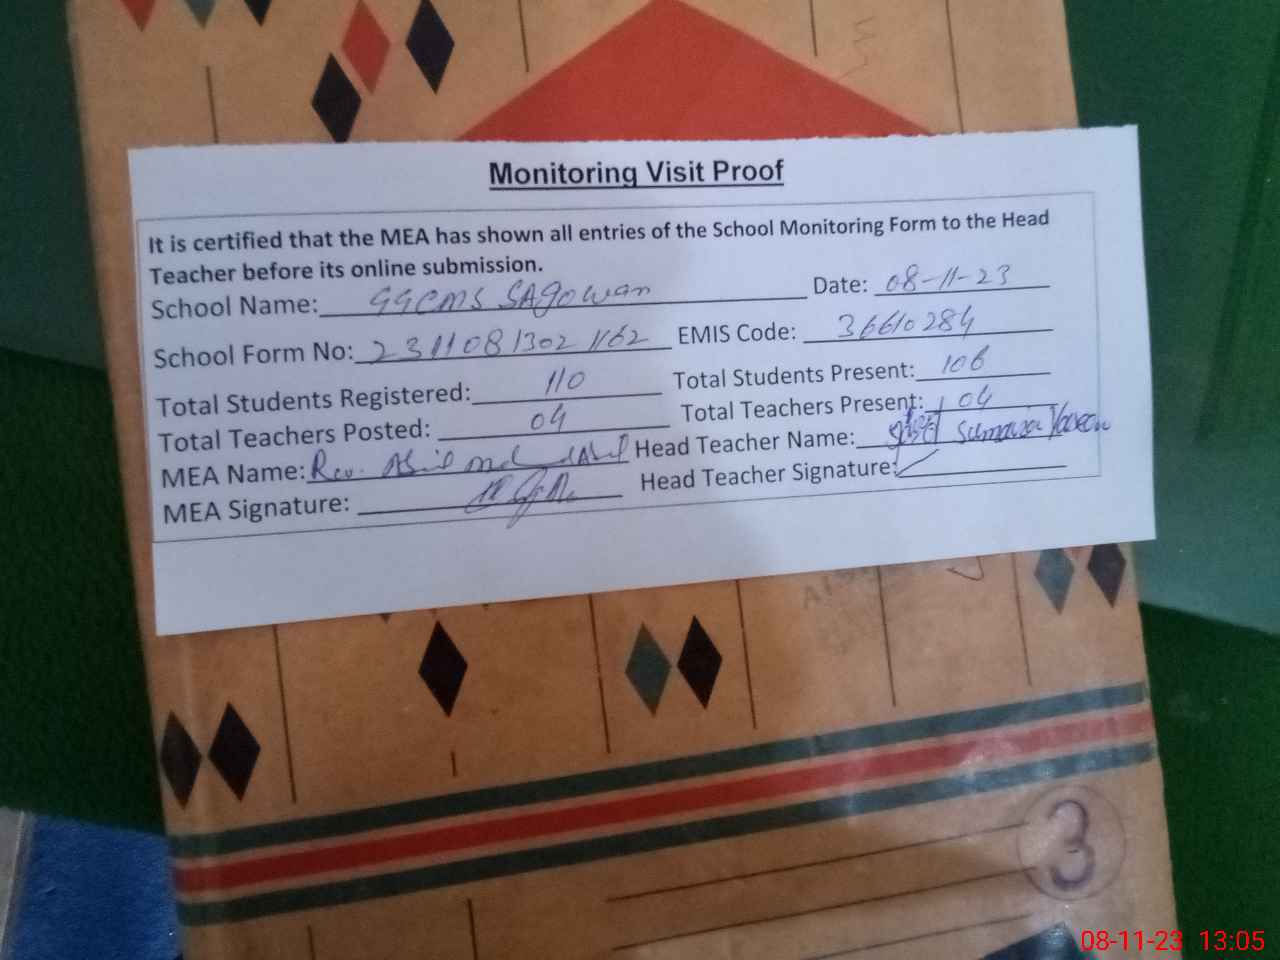 Monitoring Visit Proof
It is certified that the MEA has shown all entries of the School Monitoring Form to the Head
Teacher before its online submission.
School Name: GGCMS SAgowan Date: 08-11-23
School Form No: 2311081302 1162 EMIS Code: 36610284
Total Students Registered: 110 Total Students Present: 106
Total Teachers Posted: 04 Total Teachers Present: 04
MEA Name: Head Teacher Name: Sumaira
MEA Signature: Head Teacher Signature:
3
08-11-23 13:05